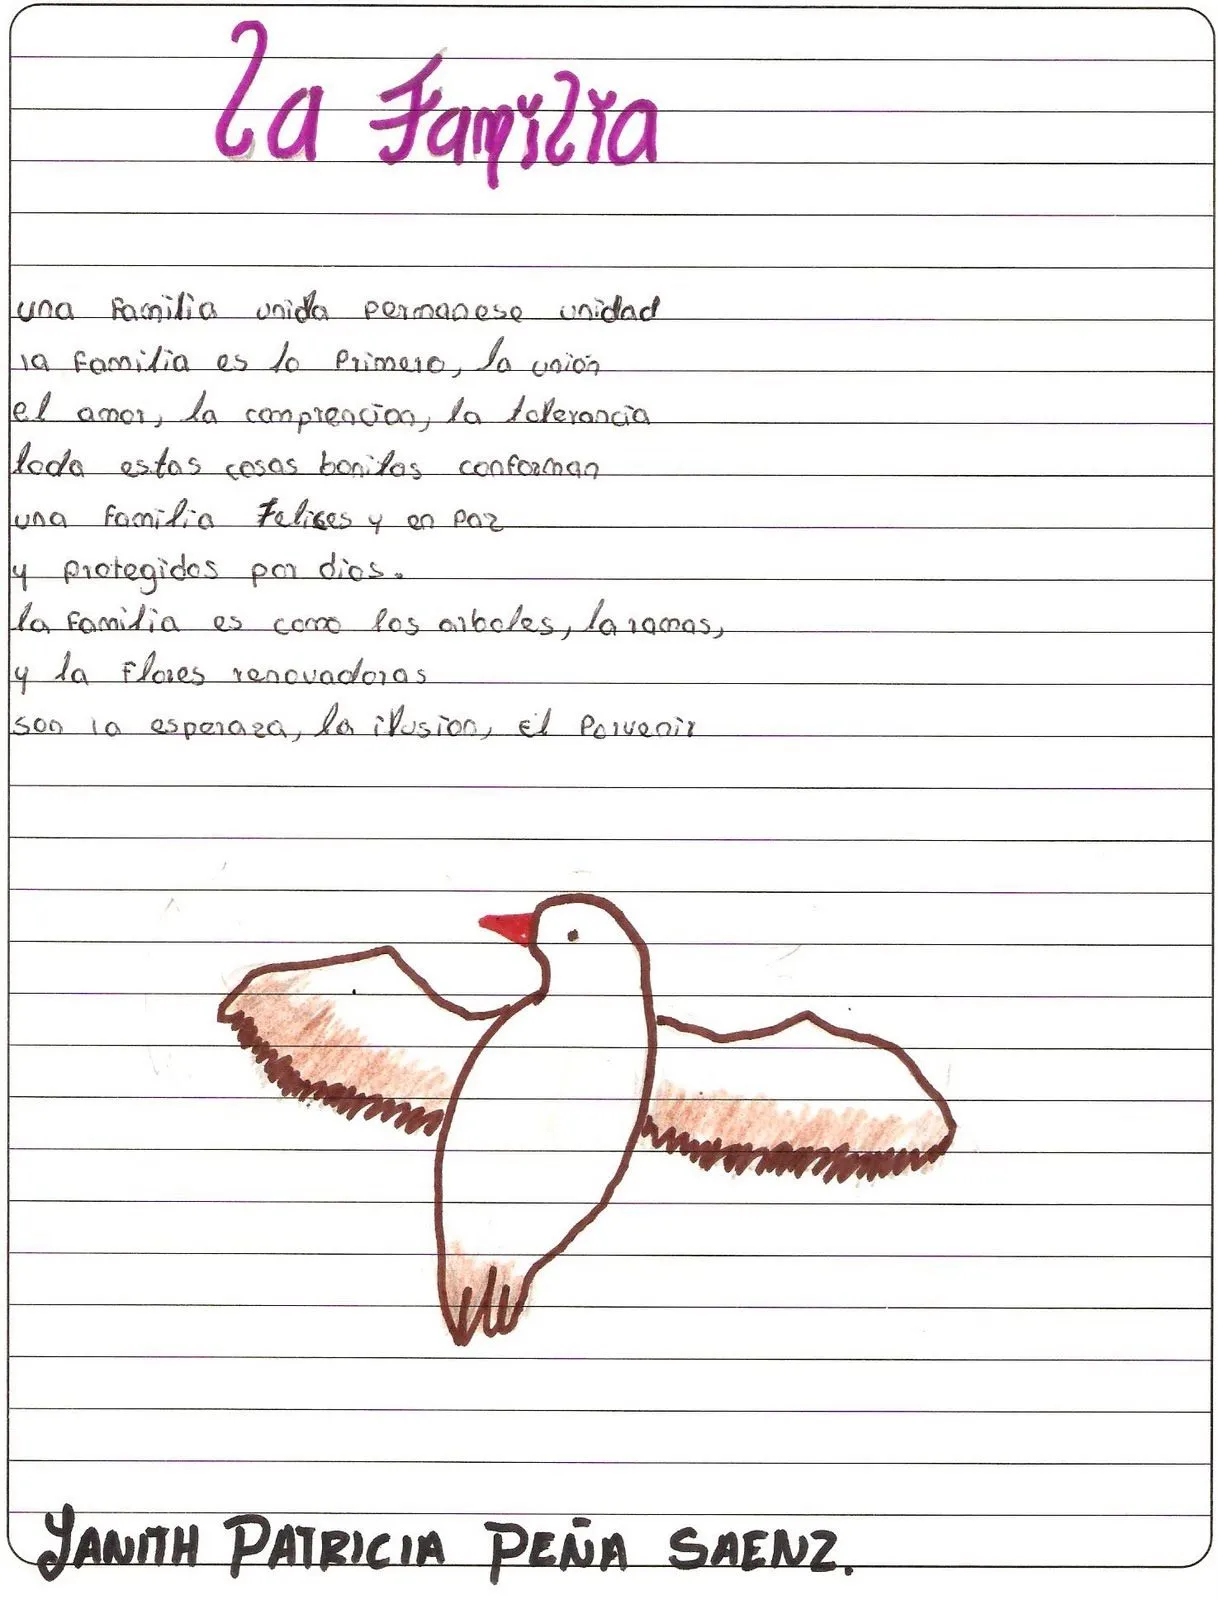 La Familia
una familia unida permanese unidad
la familia es lo Primero, la unión
el amor, la comprencion, la tolerancia
toda estas cosas bonitas conforman
una familia Felices y en Paz
y protegidos por dios.
la familia es como los arboles, la ramas,
y la Flores renovadoras
son la esperaza, la ilusion, El Porvenir
YANITH PATRICIA PEÑA SAENZ.